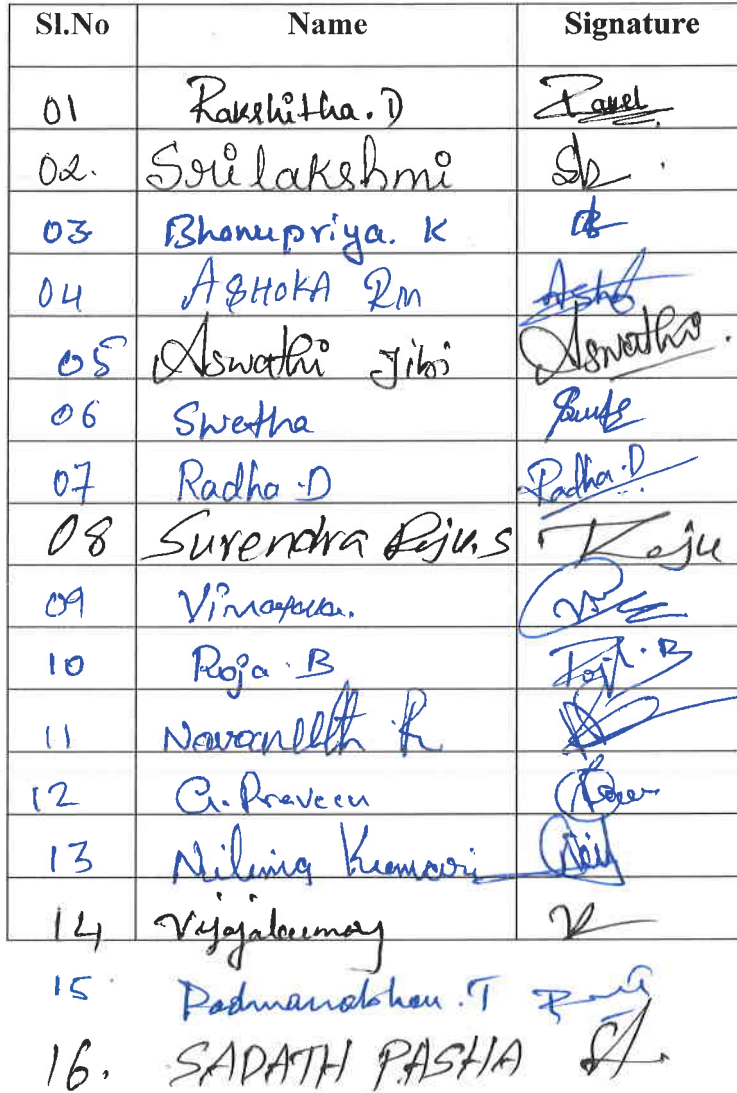 Sl.No Name Signature
01 Rakshitha.D
02. Srilakshmi
03 Bhanupriya. K
04 ASHOKA RM Ashok
05 Aswathi Jibi Aswathi.
06 Swetha
07 Radha.D Radha.D
08 Surendra Raju.S Raju
09
10 Roja.B Roja.B
11 Navaneeth R
12 G.Praveen
13 Nilima Kumari
14 Vijayakumar
15 Padmanabhan.T
16. SADATH PASHA